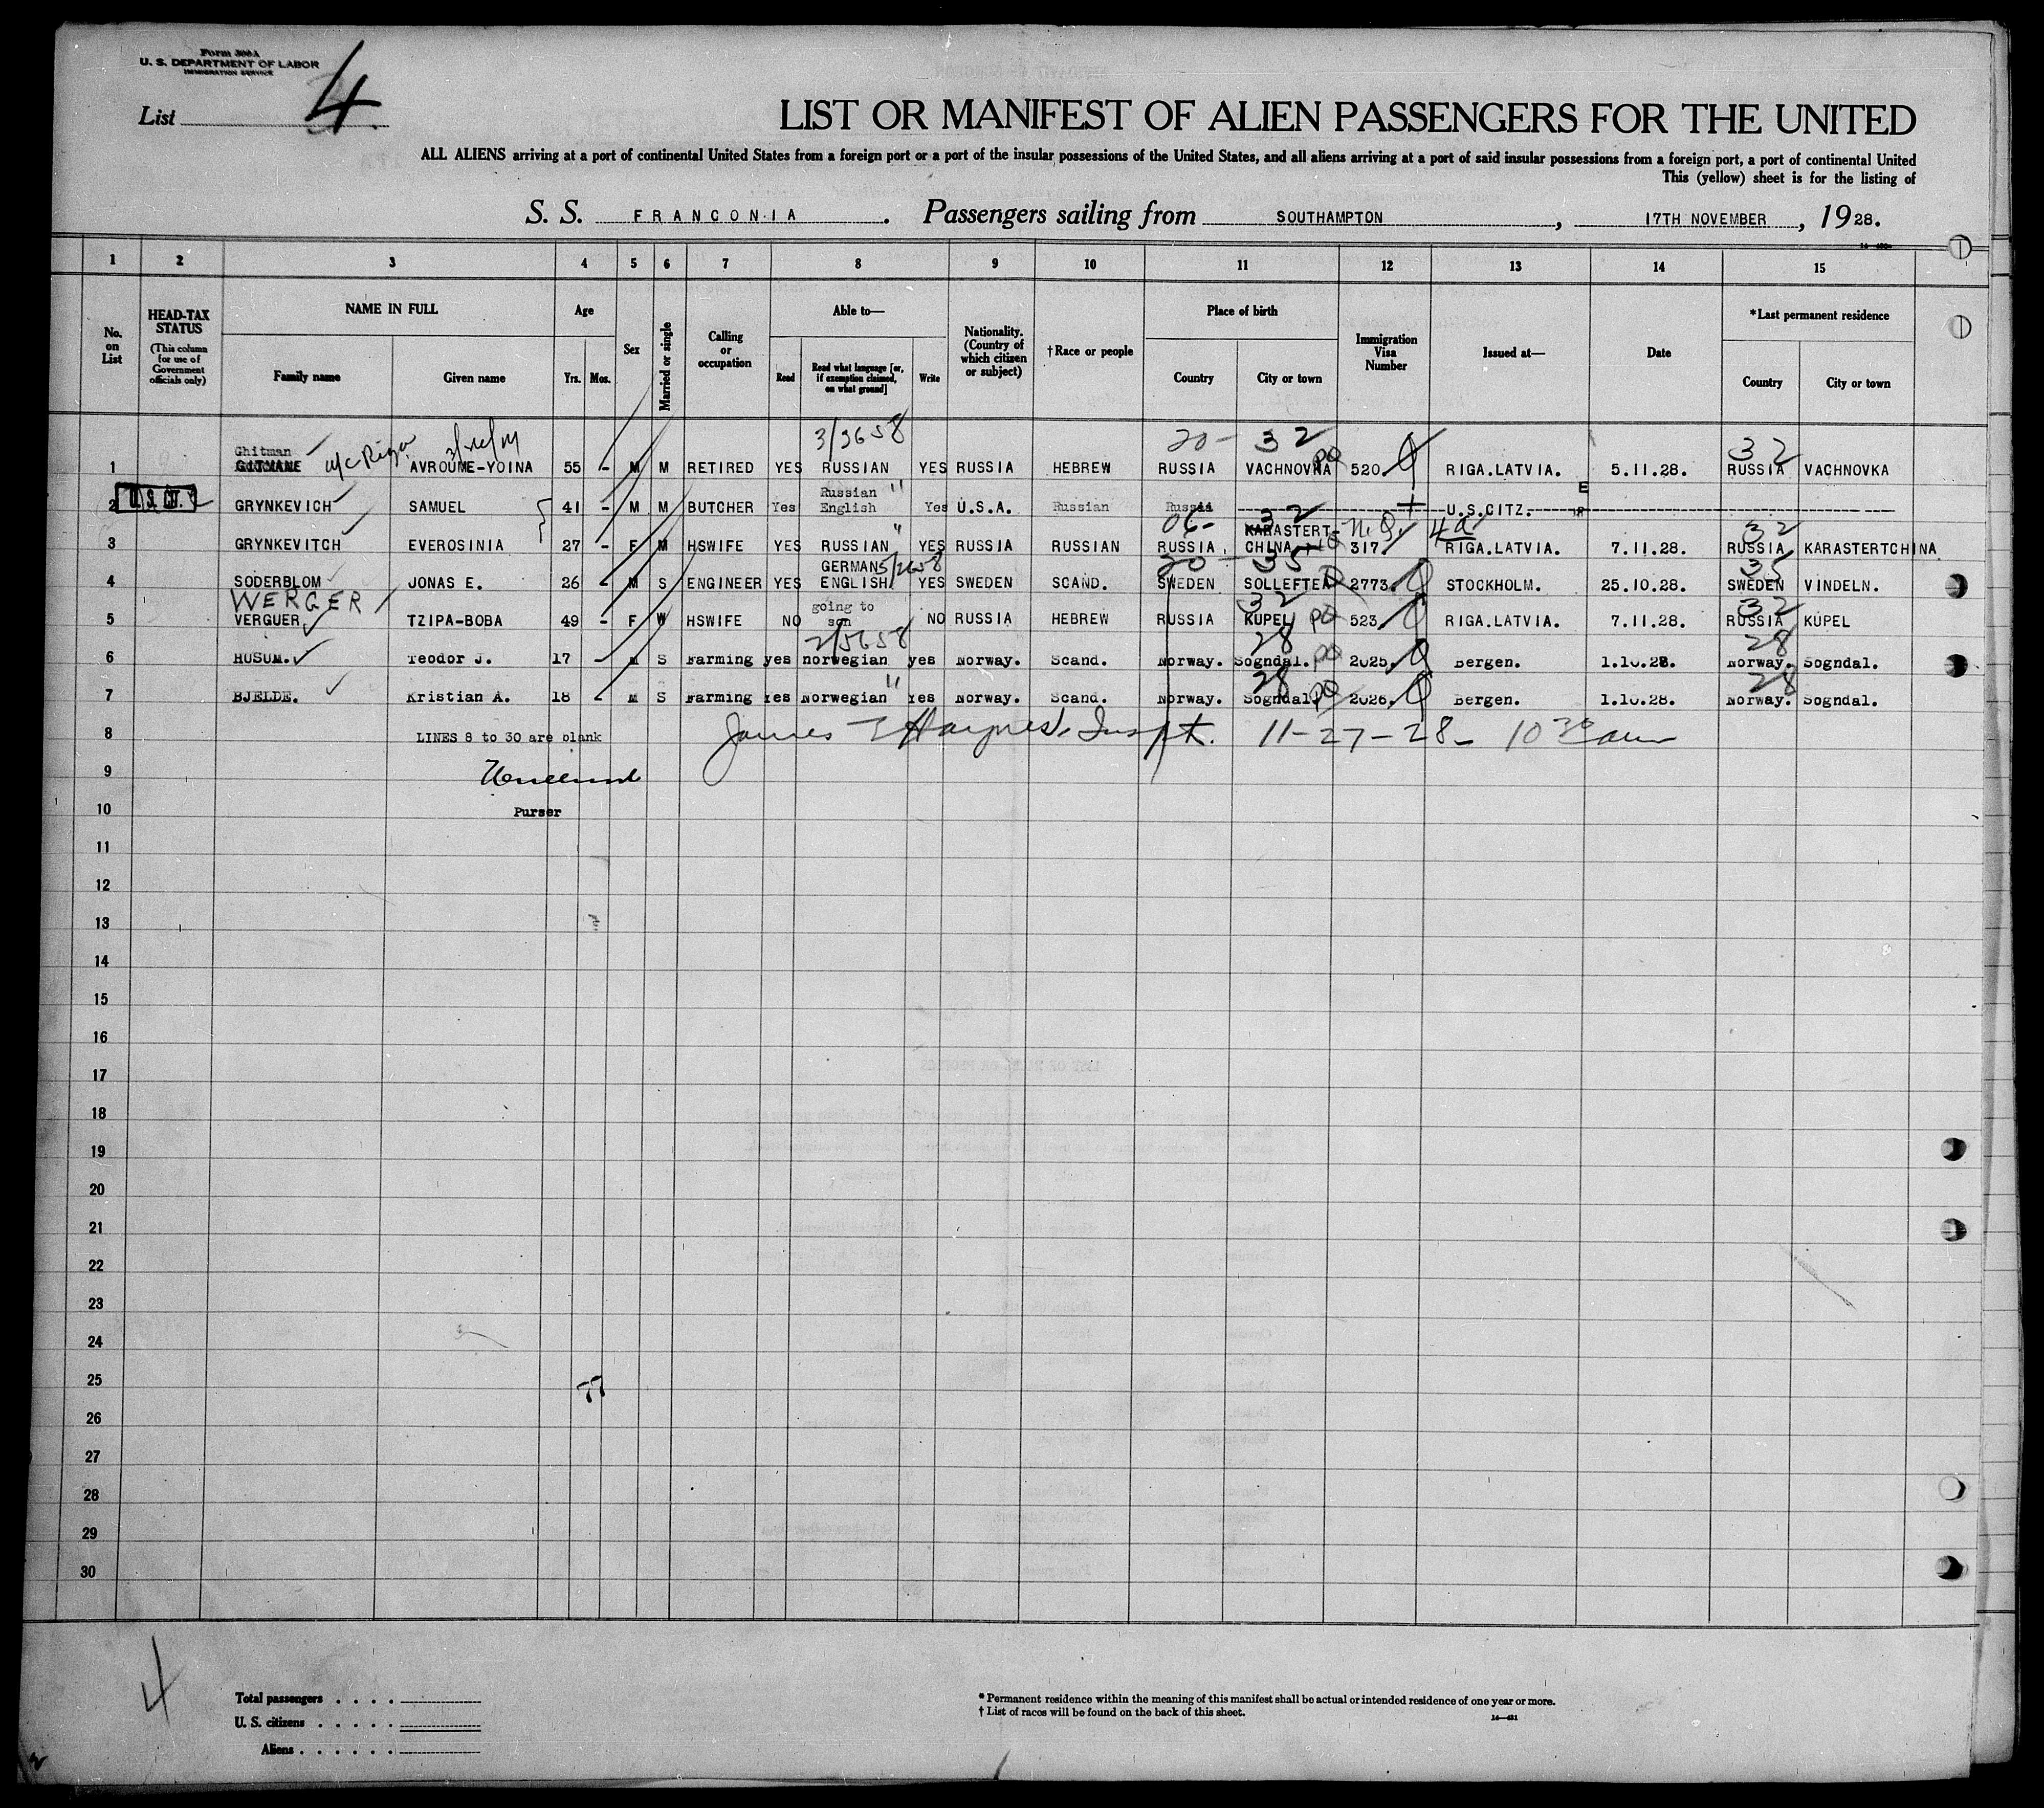 Form 500A
U. S. DEPARTMENT OF LABOR
IMMIGRATION SERVICE
List 4
LIST OR MANIFEST OF ALIEN PASSENGERS FOR THE UNITED
ALL ALIENS arriving at a port of continental United States from a foreign port or a port of the insular possessions of the United States, and all aliens arriving at a port of said insular possessions from a foreign port, a port of continental United
This (yellow) sheet is for the listing of
S. S. FRANCONIA. Passengers sailing from SOUTHAMPTON, 17TH NOVEMBER, 1928.
1 2 3 4 5 6 7 8 9 10 11 12 13 14 15
No. on List
HEAD-TAX STATUS (This column for use of Government officials only)
NAME IN FULL
Family name
Given name
Age
Yrs.
Mos.
Sex
Married or single
Calling or occupation
Able to—
Read
Read what language [or, if exemption claimed, on what ground]
Write
Nationality. (Country of which citizen or subject)
†Race or people
Place of birth
Country
City or town
Immigration Visa Number
Issued at—
Date
*Last permanent residence
Country
City or town
Ghitman 3/2658 20- 32 32
1 AVROUME-YOINA 55 - M M RETIRED YES RUSSIAN YES RUSSIA HEBREW RUSSIA VACHNOVKA 520. RIGA.LATVIA. 5.11.28. RUSSIA VACHNOVKA
Russian "
2 U.S. CIT. GRYNKEVICH SAMUEL 41 - M M BUTCHER Yes English Yes U.S.A. Russian Russia U.S.CITZ.
06- 32 KARASTERT- N.Q. 4a 32
3 GRYNKEVITCH EVEROSINIA 27 - F M HSWIFE YES RUSSIAN " YES RUSSIA RUSSIAN RUSSIA. CHINA 317. RIGA.LATVIA. 7.11.28. RUSSIA KARASTERTCHINA
GERMAN 5/2658 20 35 35
4 SODERBLOM JONAS E. 26 - M S ENGINEER YES ENGLISH YES SWEDEN SCAND. SWEDEN SOLLEFTEA 2773. STOCKHOLM. 25.10.28. SWEDEN VINDELN.
WERGER going to 32 32
5 VERGUER TZIPA-BOBA 49 - F W HSWIFE NO son NO RUSSIA HEBREW RUSSIA KUPEL 523. RIGA.LATVIA. 7.11.28. RUSSIA KUPEL
2/5658 28 28
6 HUSUM. Teodor J. 17 - M S Farming yes norwegian yes Norway. Scand. Norway. Sogndal. 2025. Bergen. 1.10.28. Norway. Sogndal.
" 28 28
7 BJELDE. Kristian A. 18 - M S Farming Yes Norwegian Yes Norway. Scand. Norway. Sogndal. 2026. Bergen. 1.10.28. Norway. Sogndal.
8 LINES 8 to 30 are blank James Haynes, Inspt. 11-27-28- 10 30 am
9
10 Purser
11
12
13
14
15
16
17
18
19
20
21
22
23
24
25
26
27
28
29
30
4
Total passengers
U. S. citizens
Aliens
* Permanent residence within the meaning of this manifest shall be actual or intended residence of one year or more.
† List of races will be found on the back of this sheet.